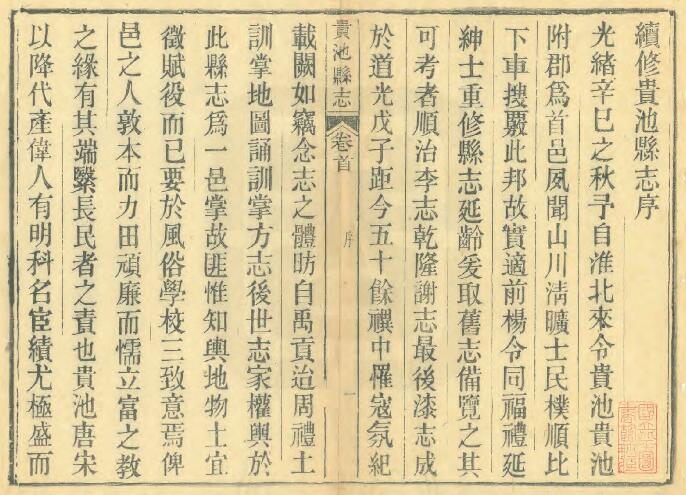 續修貴池縣志序
光緒辛巳之秋予自淮北來令貴池貴池
附郡爲首邑夙聞山川淸曠士民樸順比
下車搜覈此邦故實適前楊令同福禮延
紳士重修縣志延齡爰取舊志備覽之其
可考者順治李志乾隆謝志最後漆志成
於道光戊子距今五十餘禩中罹寇氛紀
貴池縣志
卷首
序
一
載闕如竊念志之體昉自禹貢迨周禮土
訓掌地圖誦訓掌方志後世志家權輿於
此縣志爲一邑掌故匪惟知輿地物土宜
徵賦役而已要於風俗學校三致意焉俾
邑之人敦本而力田頑廉而懦立富之敎
之緣有其端繄長民者之責也貴池唐宋
以降代產偉人有明科名宦績尤極盛而